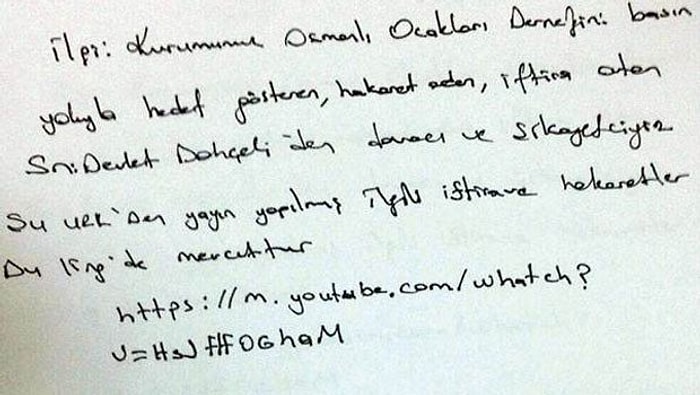 İlgi: Kurumumuz Osmanlı Ocakları Derneğini basın
yoluyla hedef gösteren, hakaret eden, iftira atan
Sn: Devlet Bahçeli 'den davacı ve şikayetçiyiz
Şu URL'den yayın yapılmış ilgili iftira ve hakaretler
Bu ling'de mevcuttur
https://m.youtube.com/whatch?
v=HsJffFOGhaM